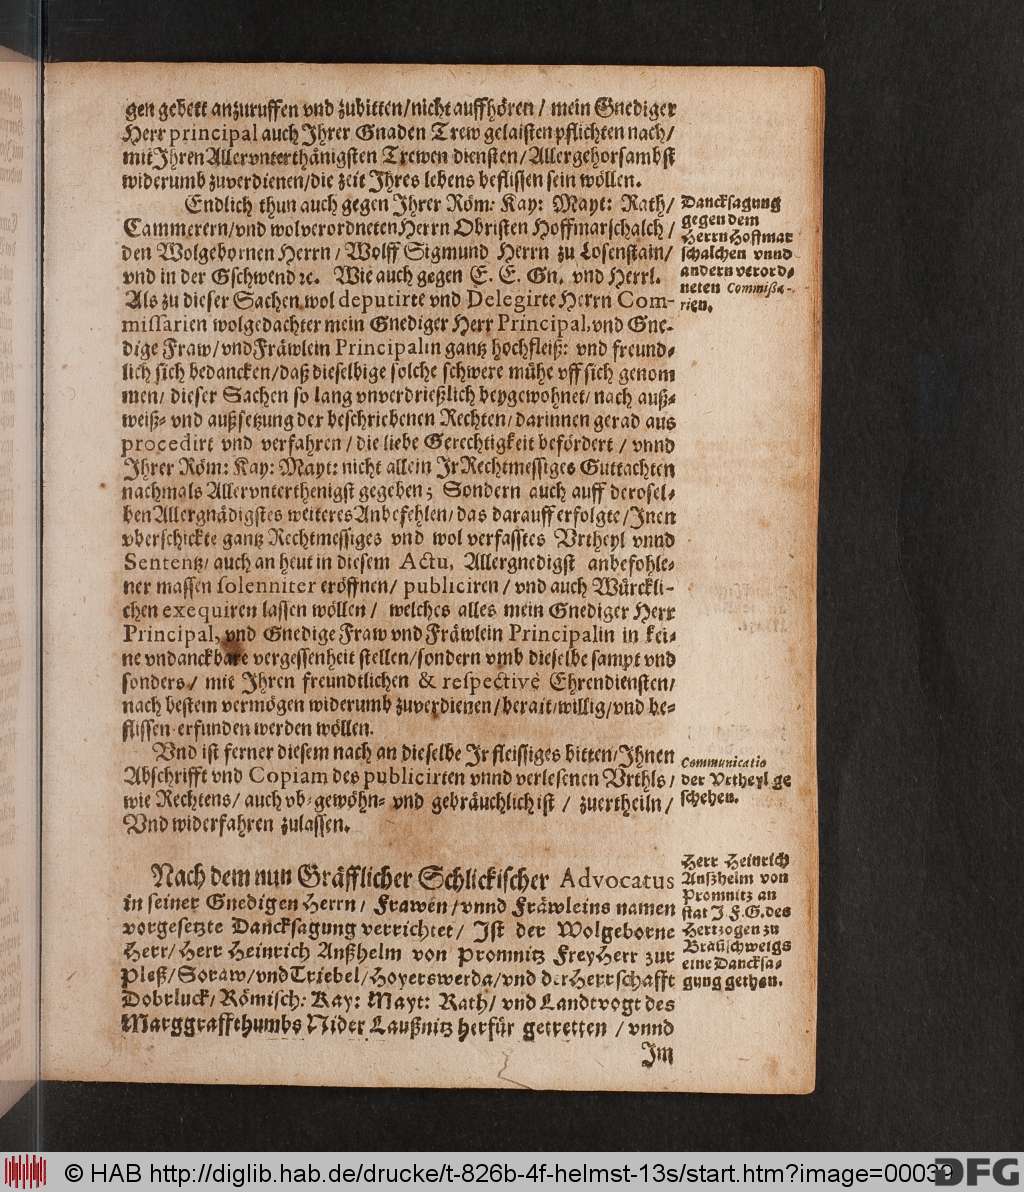 gen gebett anzuruffen vnd zubitten/nicht auffhören / mein Gnediger
Herr principal auch Jhrer Gnaden Trew gelaisten pflichten nach/
mit Jhren Allervnterthänigsten Trewen diensten/ Allergehorsambst
widerumb zuverdienen/die zeit Jhres lebens beflissen sein wöllen.
Endlich thun auch gegen Jhrer Röm: Kay: Mayt: Rath/
Cammerern/vnd wolverordneten Herrn Obristen Hoffmarschalch /
den Wolgebornen Herrn / Wolff Sigmund Herrn zu Losenstain/
vnd in der Gschwend ꝛc. Wie auch gegen E. E. Gn. vnd Herrl.
Als zu dieser Sachen wol deputirte vnd Delegirte Herrn Com-
missarien wolgedachter mein Gnediger Herr Principal, vnd Gne-
dige Fraw/ vnd Fräwlein Principalin gantz hochfleiß: vnd freund-
lich sich bedancken/daß dieselbige solche schwere mühe vff sich genom
men/ dieser Sachen so lang vnverdrießlich beygewohnet/ nach auß-
weiß- vnd außsetzung der beschriebenen Rechten/ darinnen gerad aus
procedirt vnd verfahren / die liebe Gerechtigkeit befördert / vnnd
Jhrer Röm: Kay: Mayt: nicht allein Jr Rechtmessiges Guttachten
nachmals Allervnterthenigst gegeben; Sondern auch auff derosel-
ben Allergnädigstes weiteres Anbefehlen/ das darauff erfolgte/ Jnen
vberschickte gantz Rechtmessiges vnd wol verfasstes Vrtheyl vnnd
Sententz/ auch an heut in diesem Actu, Allergnedigst anbefohle-
ner massen solenniter eröffnen/ publiciren / vnd auch Würckli-
chen exequiren lassen wöllen / welches alles mein Gnediger Herr
Principal, vnd Gnedige Fraw vnd Fräwlein Principalin in kei-
ne vndanckbare vergessenheit stellen/sondern vmb dieselbe sampt vnd
sonders/ mit Jhren freundtlichen & respectivè Ehrendiensten/
nach bestem vermögen widerumb zuverdienen/ berait/ willig/ vnd be-
flissen erfunden werden wöllen.
Vnd ist ferner diesem nach an dieselbe Jr fleissiges bitten/Jhnen
Abschrifft vnd Copiam des publicirten vnnd verlesenen Vrthls/
wie Rechtens/ auch vb-gewöhn- vnd gebräuchlich ist / zuertheiln/
Vnd widerfahren zulassen.
Nach dem nun Gräfflicher Schlickischer Advocatus
in seiner Gnedigen Herrn/ Frawen/vnnd Fräwleins namen
vorgesetzte Dancksagung verrichtet/ Jst der Wolgeborne
Herr/ Herr Heinrich Anßhelm von Promnitz FreyHerr zur
Pleß/ Soraw/vnd Triebel/Hoyerswerda/vnd der Herrschafft
Dobrluck/ Römisch: Kay: Mayt: Rath/ vnd Landtvogt des
Marggraffthumbs Nider Laußnitz herfür getretten / vnnd
Jm
Dancksagung
gegen dem
Herrn Hoffmar
schalchen vnnd
andern verord-
neten Commissa-
rien.
Communicatio
der Vrtheyl ge
schehen.
Herr Heinrich
Anßhelm von
Promnitz an
stat J. F. G. des
Hertzogen zu
Braüschweigs
eine Dancksa-
gung gethan.
© HAB http://diglib.hab.de/drucke/t-826b-4f-helmst-13s/start.htm?image=00039
DFG